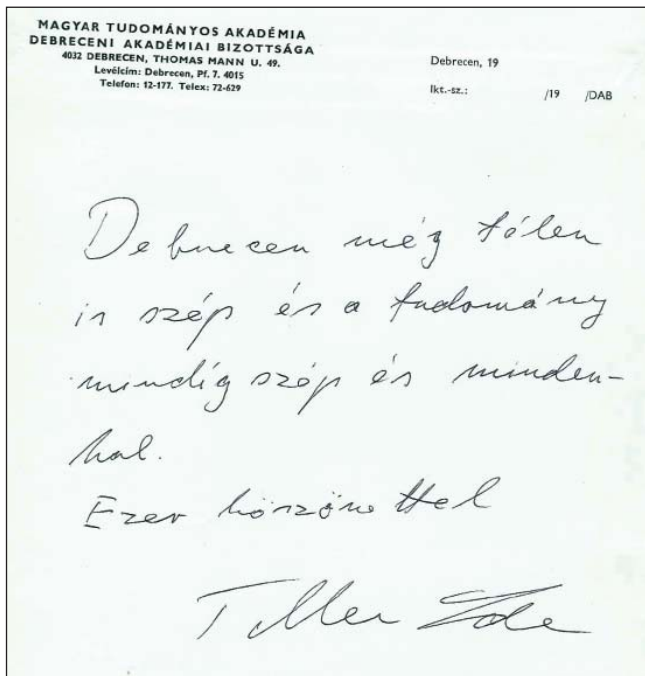 MAGYAR TUDOMÁNYOS AKADÉMIA
DEBRECENI AKADÉMIAI BIZOTTSÁGA
4032 DEBRECEN, THOMAS MANN U. 49.
Levélcím: Debrecen, Pf. 7. 4015
Telefon: 12-177. Telex: 72-629
Debrecen, 19
Ikt.-sz.: /19 /DAB
Debrecen még télen
is szép és a tudomány
mindíg szép és minden-
hol.
Ezer köszönettel
Teller Ede